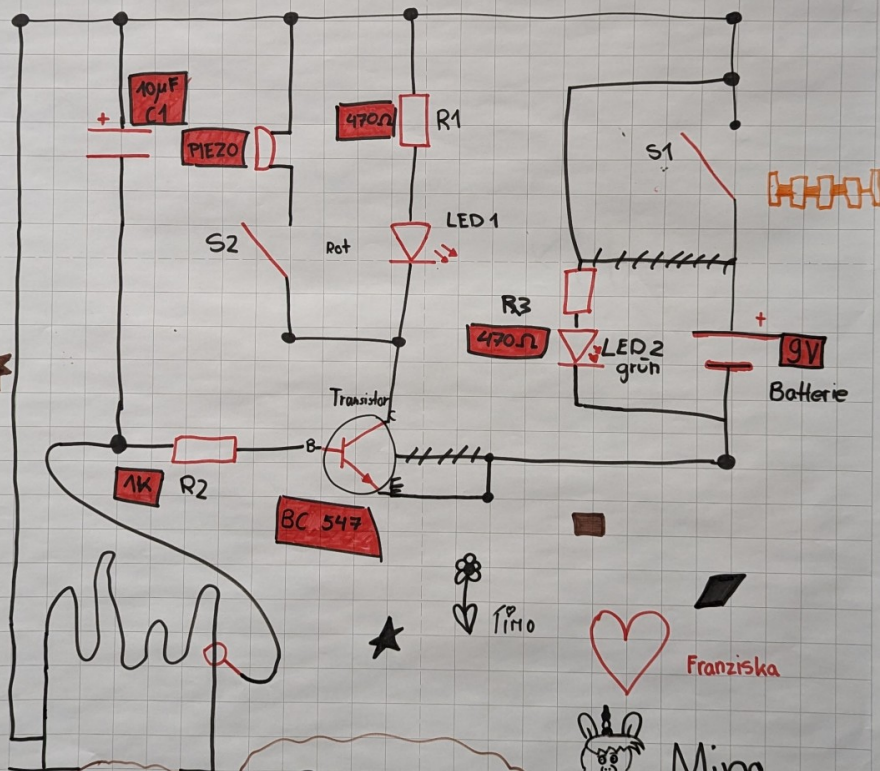 10µF
C1
+
PIEZO
470Ω
R1
S1
S2
Rot
LED 1
R3
470Ω
LED 2
grün
+
9V
Batterie
Transistor
C
B
E
1K
R2
BC 547
Timo
Franziska
Mina